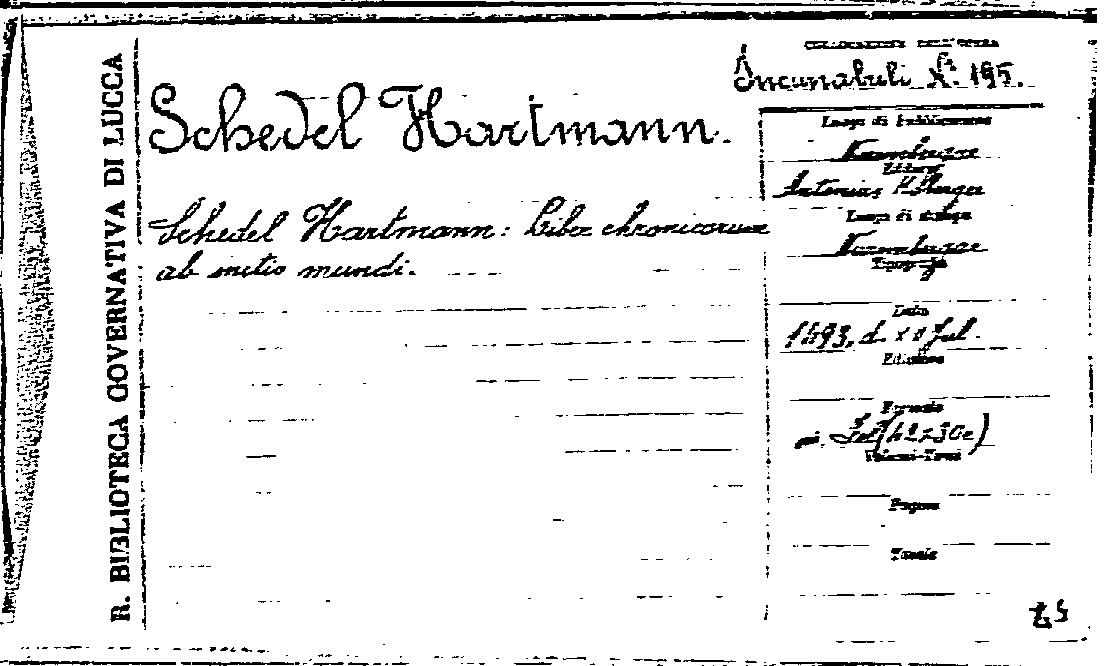 R. BIBLIOTECA GOVERNATIVA DI LUCCA
COLLOCAZIONE DELL'OPERA
Incunabuli N. 195.
Schedel Hartmann.
Schedel Hartmann: Liber chronicarum
ab initio mundi.
Luogo di pubblicazione
Nurembergae
Editore
Antonius Koberger
Luogo di stampa
Nurembergae
Tipografia
Data
1493, d. Jul.
Edizione
Formato
Fol (42x30c)
Volumi-Tomi
Pagine
Tavole